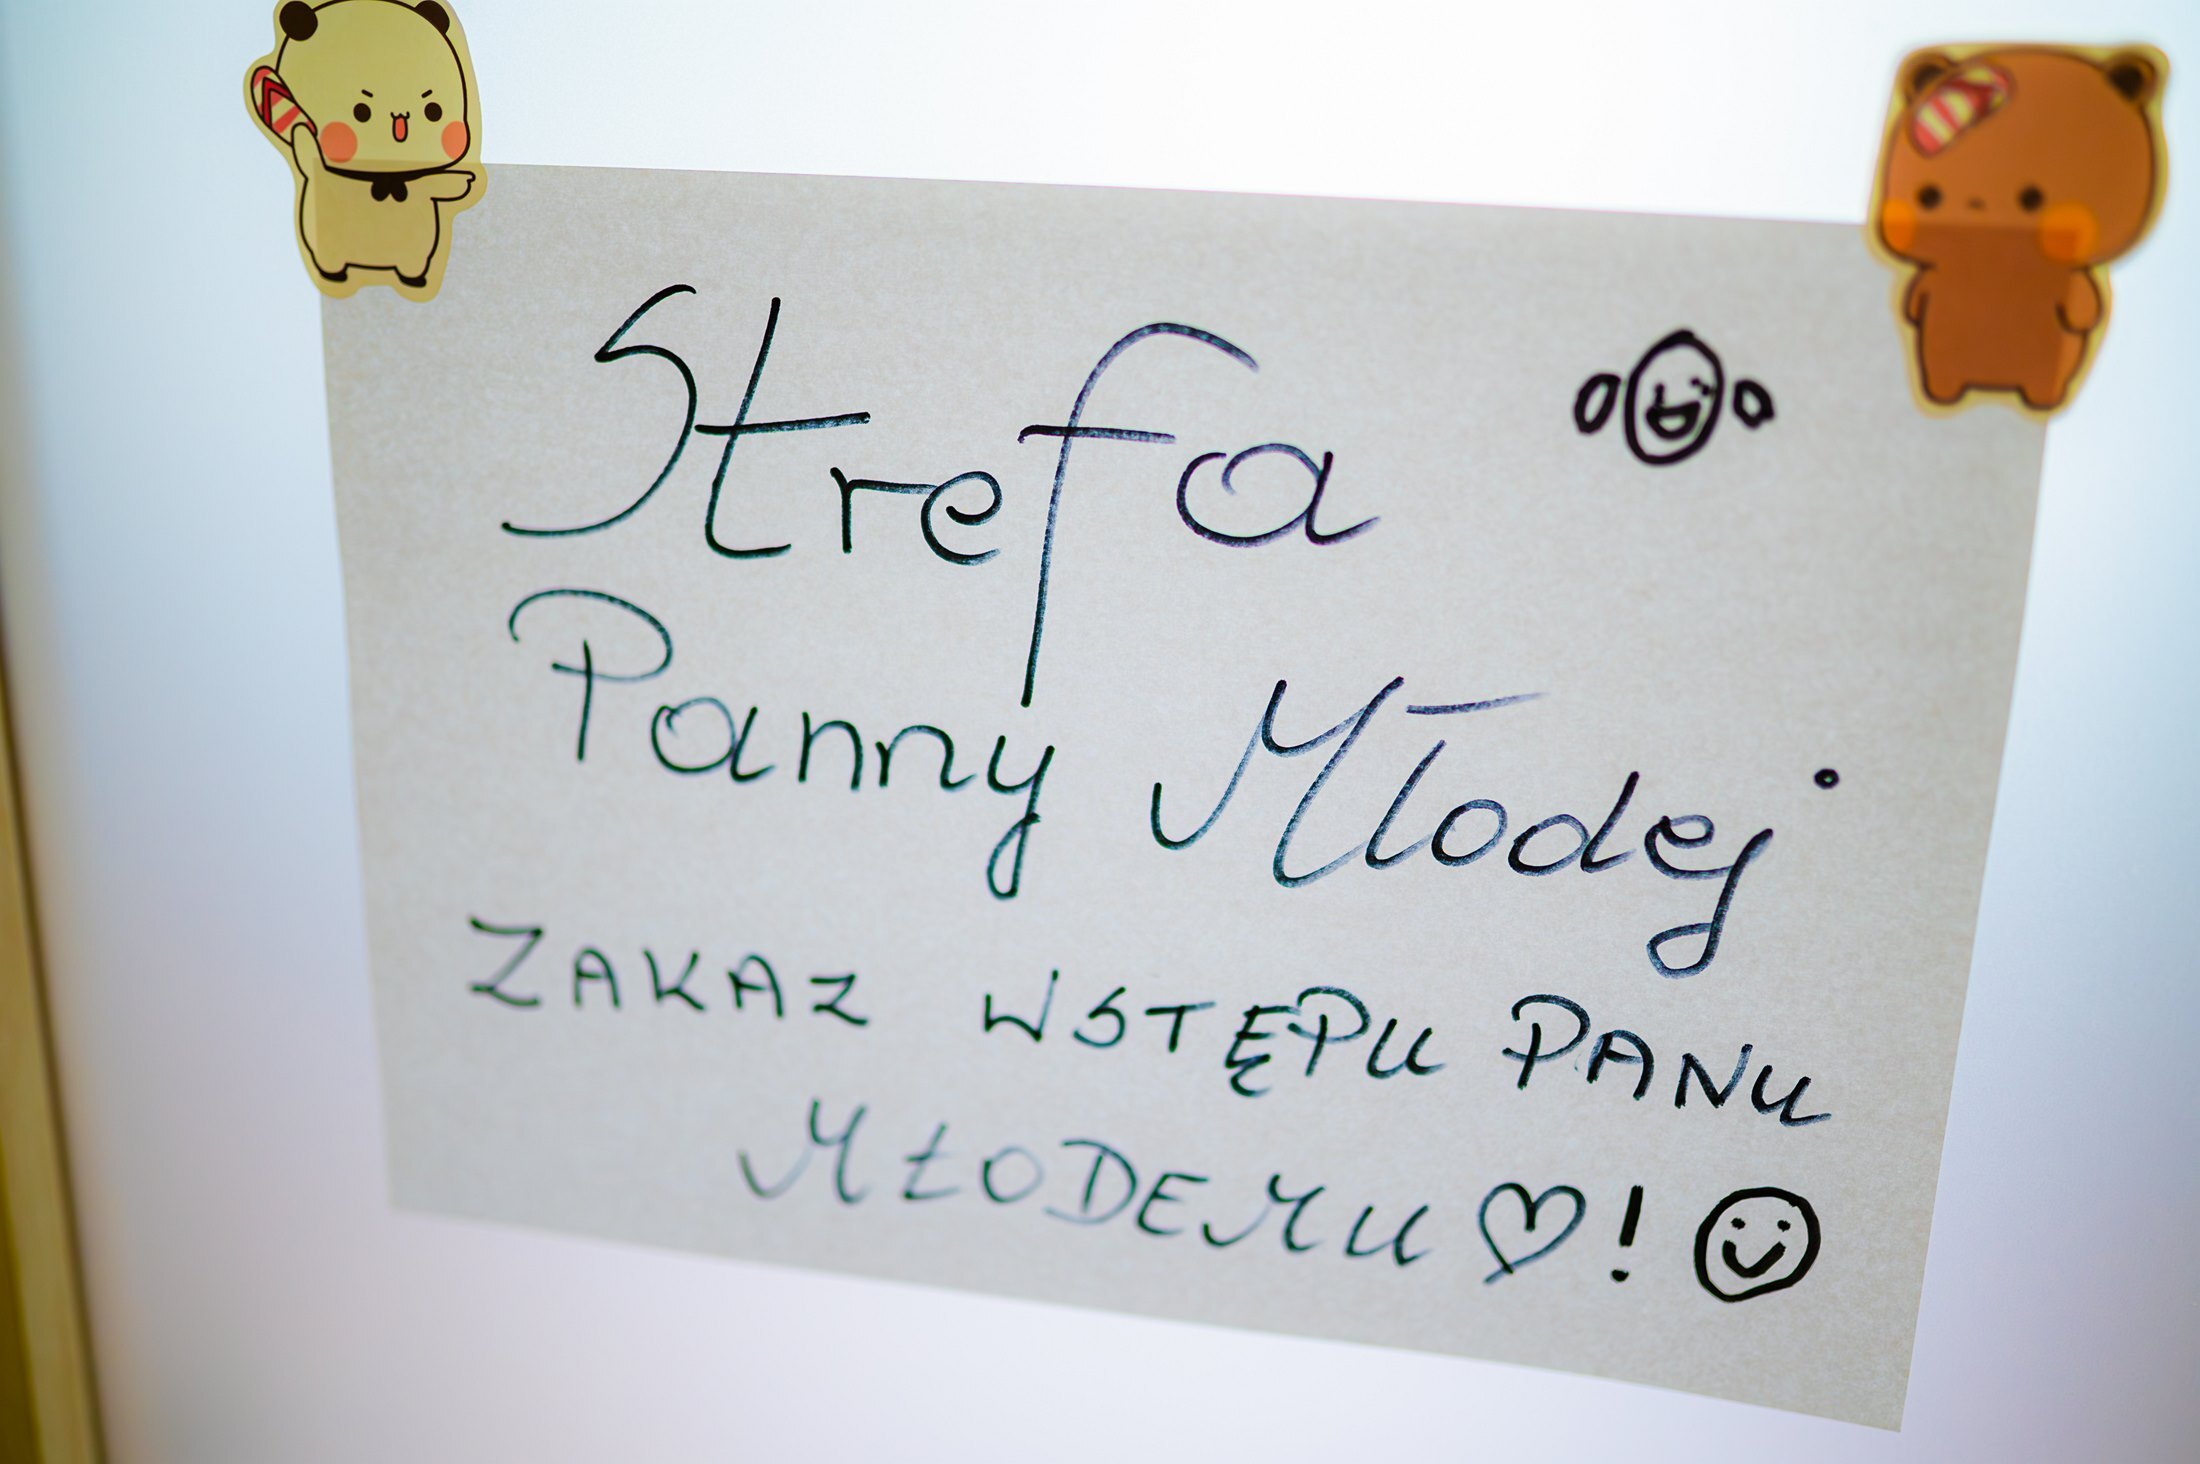 Strefa
Panny Młodej
ZAKAZ WSTĘPU PANU
MŁODEMU ♡! ☺